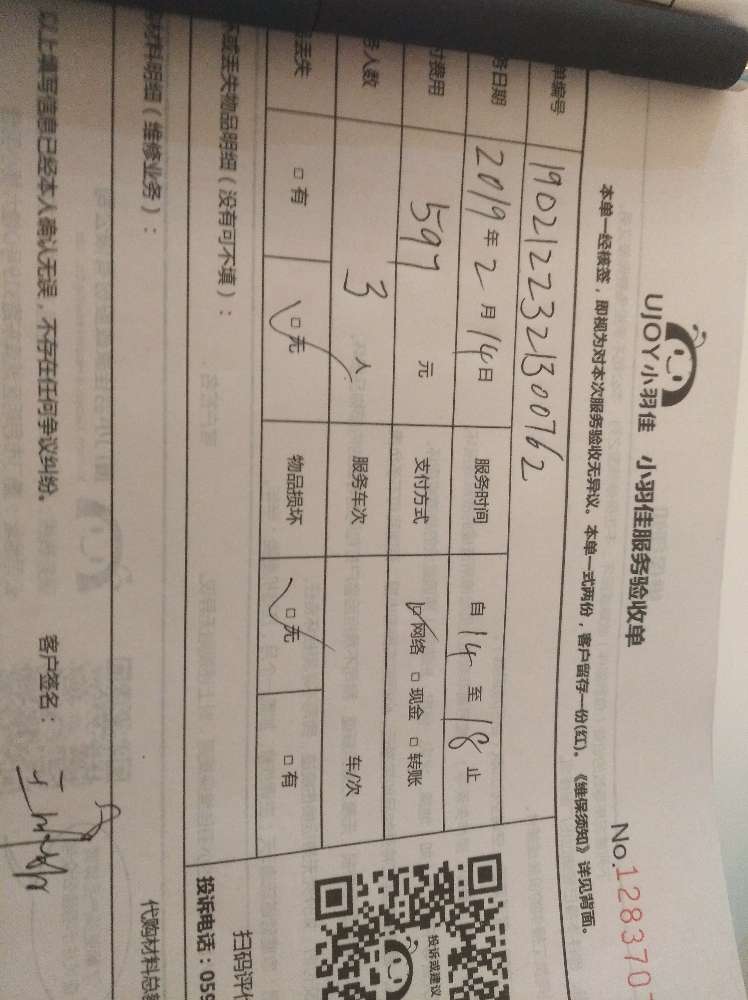 UJOY小羽佳 小羽佳服务验收单
No.128370
本单一经核签，即视为对本次服务验收无异议。本单一式两份，客户留存一份(红)。《维保须知》详见背面。
单编号 1902122321300762
务日期 2019年2月14日 服务时间 自14至18止
付费用 597元 支付方式 ☑网络 □现金 □转账
务人数 3人 服务车次 车/次
丢失 □有 ☑无 物品损坏 ☑无 □有
或丢失物品明细（没有可不填）：
材料明细（维修业务）：
代购材料总
以上填写信息已经本人确认无误，不存在任何争议纠纷。 客户签名：
投诉或建议
扫码评
投诉电话：059